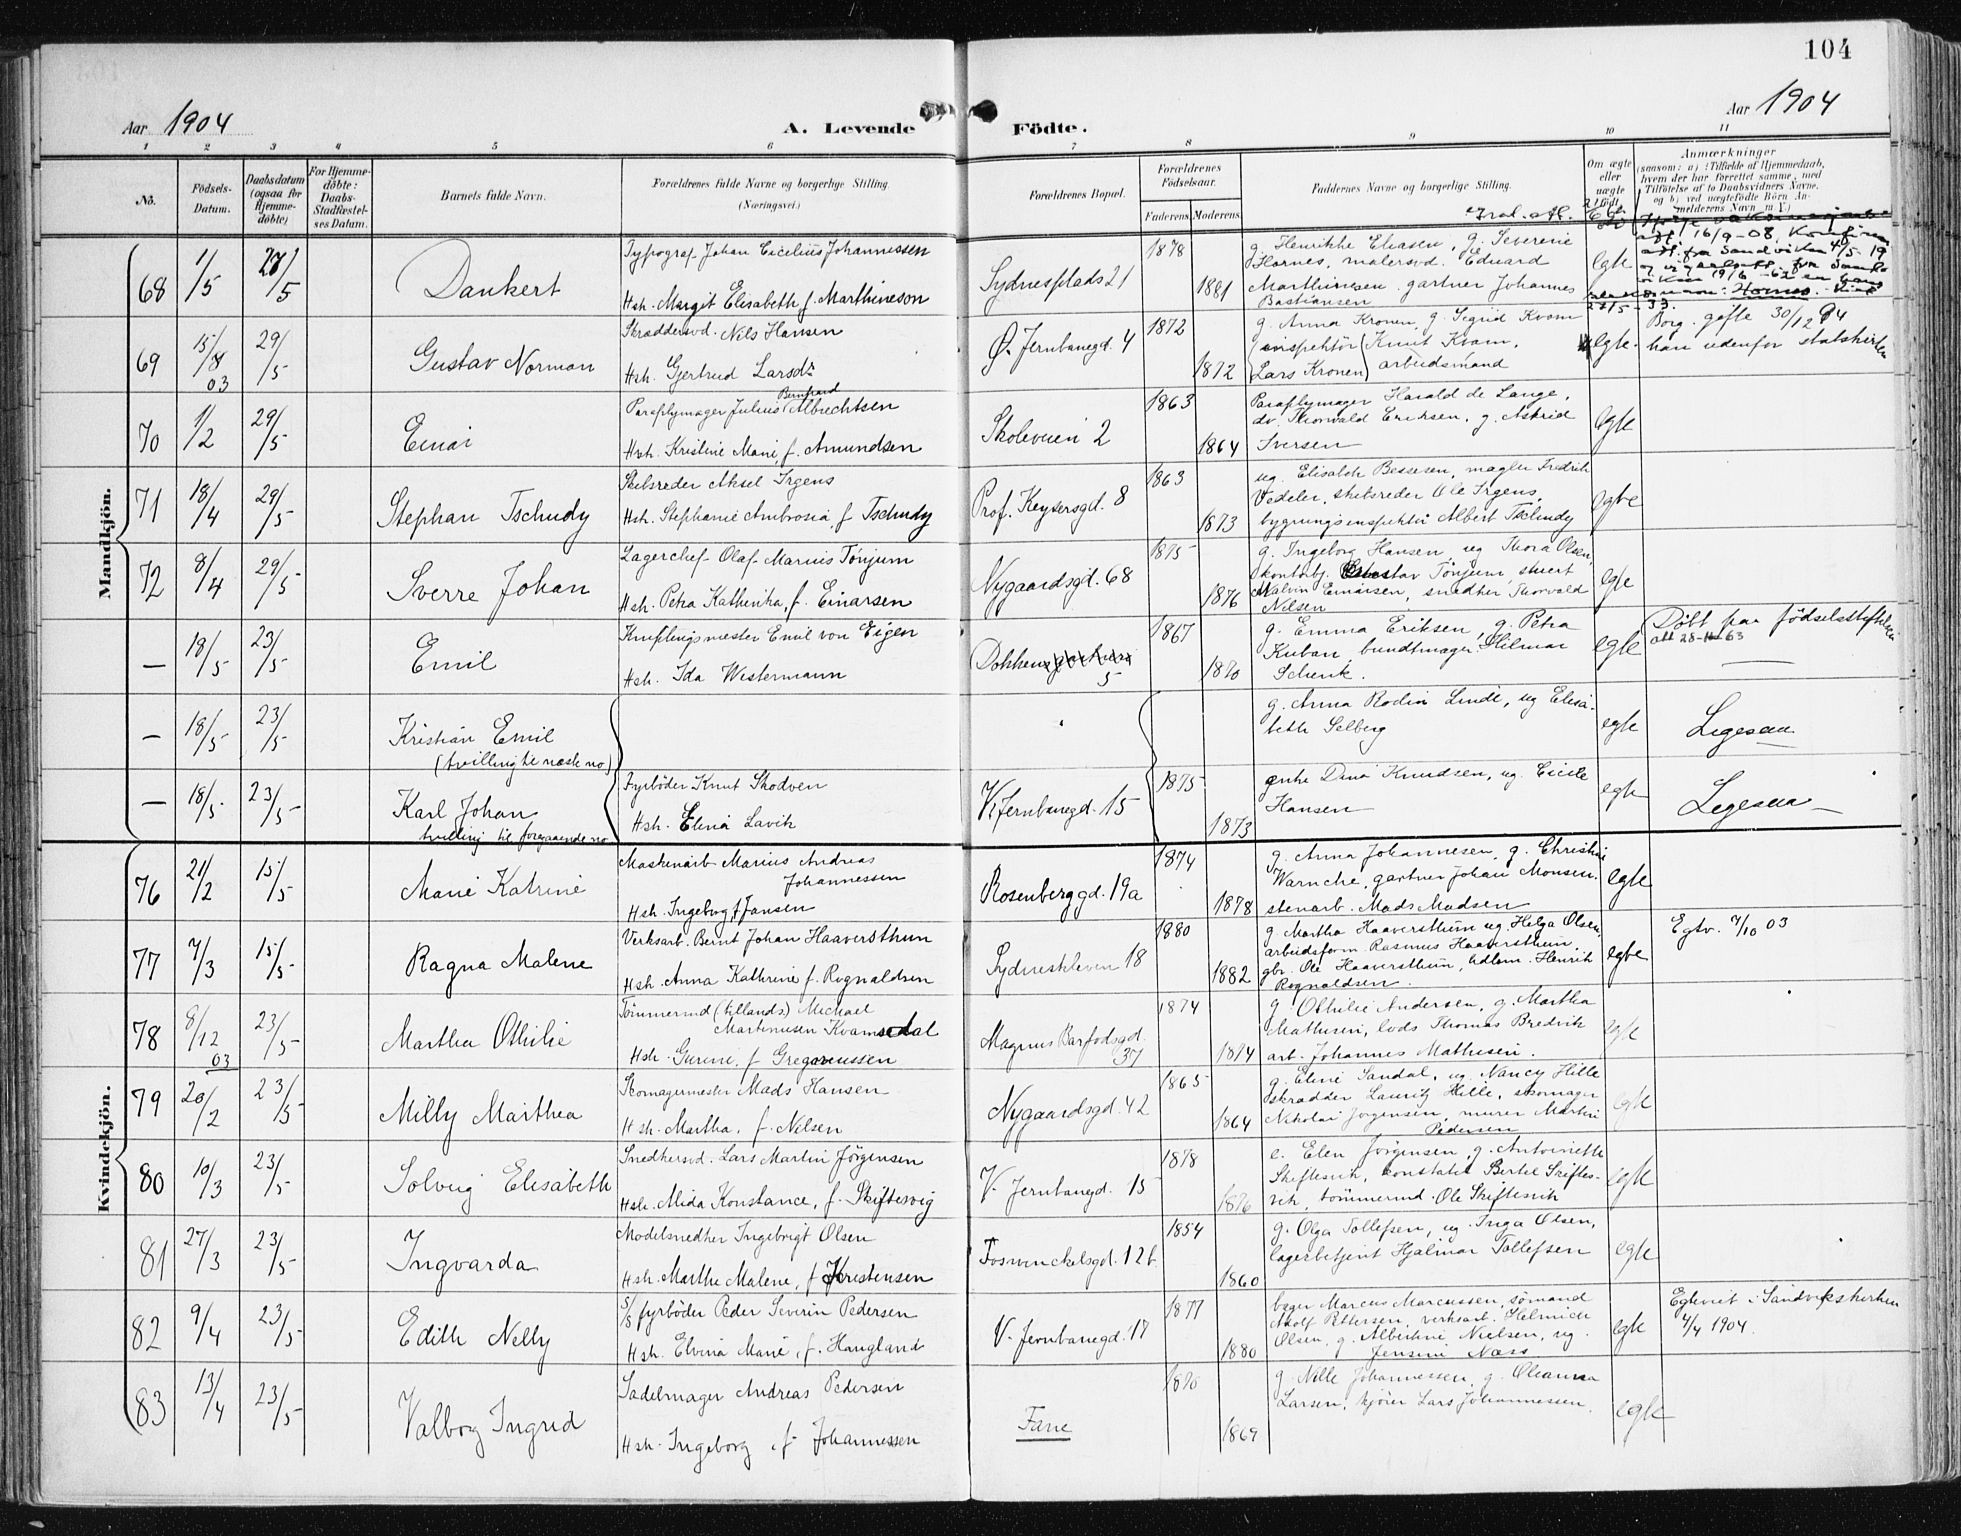 104
Aar 1904
A. Levende
Födte.
Aar 1904
1 2 3 4 5 6 7 8 9 10 11
No.
Födsels-Datum.
Daabsdatum (ogsaa for Hjemme-döbte)
For Hjemme-döbte: Daabs-Stadfæstel-ses Datum.
Barnets fulde Navn.
Forældrenes fulde Navne og borgerlige Stilling.
(Næringsvei.)
Forældrenes Bopæl.
Forældrenes Födselsaar.
Faderens Moderens
Faddernes Navne og borgerlige Stilling.
Om ægte eller uægte födt.
Anmærkninger
(saasom: a) i Tilfælde af Hjemmedaab, hvem der har forrettet samme, med Tilföielse af to Daabsvidners Navne, og b) ved uægtefödte Börn Anmelderens Navn m. V.)
Mandkjön.
68 1/5 27/5 Dankert
Typograf Johan Cicelius Johannessen
Hsh. Margit Elisabeth f. Marthineson
Sydnesplads 21
1878 1881
g. Henrikke Eliasen, g. Severine
Hornes, malersvd. Eduard
Marthinesen, gartner Johannes
Bastiansen
egte
att. 16/9-08.
att. fra Sandviken 4/5-19
69 15/8 03 29/5 Gustav Norman
Skræddersvd. Nils Hansen
Hsh. Gjertrud Larsdt.
Ø. Jernbanegd. 4
1872 1872
g. Anna Kronen, g. Sigrid Kvam
(inspektör) Knut Kvam,
(Lars Kronen) arbeidsmand
egte
Borg. gifte 30/12 94
han udenfor statskirken
70 1/2 29/5 Einar
Paraplymager Julius Bernhard Albrechtsen
Hsh. Kristine Marie, f. Amundsen
Skoleveien 2
1863 1864
Paraplymager Harald de Lange,
do. Thorvald Eriksen, g. Astrid
Iversen
egte
71 18/4 29/5 Stephan Tschudy
Skibsreder Aksel Irgens
Hsh. Stephanie Ambrosia, f. Tschudy
Prof. Keysersgd. 8
1863 1873
ug. Elisabeth Bessesen, mægler Fredrik
Vedeler, skibsreder Ole Irgens,
bygningsinspektör Albert Tschudy
egte
72 8/4 29/5 Sverre Johan
Lagerchef Olaf Marius Tönjum
Hsh. Petra Kathinka, f. Einarsen
Nygaardsgd. 68
1875 1876
g. Ingeborg Hansen, ug Thora Olsen,
kontorbj. Gustav Tönjum, stuert
Malvin Einarsen, snedker Thorvald
Nilsen
egte
— 18/5 23/5 Emil
Kniplingsmester Emil von Eigen
Hsh. Ida Westermann
Dokken 5
1867 1870
g. Emma Eriksen, g. Petra
Kuban, bundtmager Hilmar
Schenk.
egte
Döbt paa födselsstiftelsen
— 18/5 23/5 Kristian Emil
(tvilling te næste no)
g. Anna Rodin Linde, ug Elisa-
beth Selberg
egte
Ligesaa
— 18/5 23/5 Karl Johan
tvilling til foregaaende no
Fyrböder Knut Skodven
Hsh. Elina Lavik
V. Jernbanegd. 15
1875 1873
enke Dina Knudsen, ug. Cicile
Hansen
egte
Ligesaa
Kvindekjön.
76 21/2 15/5 Marie Katrine
Maskinarb Marius Andreas
Johannessen
Hsh. Ingeborg f. Jansen
Rosenberggd. 19a
1874 1878
g. Anna Johannesen, g. Christine
Warncke, gartner Johan Monsen,
stenarb. Mads Madsen
egte
77 7/3 15/5 Ragna Malene
Verksarb. Bernt Johan Haaversthun
Hsh. Anna Kathrine f. Rognaldsen
Sydneskleven 18
1880 1882
g. Martha Haaversthum ug. Helga Olsen,
arbeidsform. Rasmus Haaversthum,
gbr. Ole Haaversthun, Adlom. Henrik
Rognaldsen.
egte
Egtv. 7/10 03
78 8/12 03 23/5 Martha Othilie
Tömmermd (tillands) Michael
Martinusen Kvamsdal
Hsh. Gurine, f Gregoriussen
Magnus Barfodsgd. 37
1874 1874
g. Othilie Andersen, g. Martha
Mathisen, lods Thomas Bredvik
arb. Johannes Mathisen.
egte
79 20/2 23/5 Milly Marthea
Skomagermester Mads Hansen
Hsh. Martha, f. Nilsen
Nygaardsgd. 42
1865 1864
g. Eline Sandal, ug Nancy Hille
skrædder Lauritz Hille, skomager
Nikolai Jorgensen, murer Martin
Pedersen
egte
80 10/3 23/5 Solveig Elisabeth
Snedkersvd. Lars Martin Jörgensen
Hsh. Mida Konstance, f. Skiftesvig
V. Jernbanegd. 15
1878 1876
e. Elen Jörgensen, g. Antoinette
Skiftesvik, konstabel Bertel Skiftes-
vik, tömmermd. Ole Skiftesvik
egte
81 27/3 23/5 Ingvarda
Modelsnedker Ingebrigt Olsen
Hsh. Marthe Malene, f Kristensen
Fosswinckelsgd. 12b.
1854 1860
g. Olga Tollefsen, ug. Inga Olsen,
lagerbetjent Hjalmar Tollefsen
egte
82 9/4 23/5 Edith Nelly
S/S fyrböder Peder Severin Pedersen
Hsh. Elvina Marie, f. Haugland
V. Jernbanegd. 17
1877 1880
bager Marcus Marcussen, sömand
Adolf Pettersen, verksarb. Helmich
Olsen, g. Albertine Nielsen, ug.
Jensine Næss
egte
Egteviet i Sandvikskirken
4/4 1904.
83 13/4 23/5 Valborg Ingrid
Sadelmager Andreas Pedersen
Hsh. Ingeborg, f Johannessen
Fane
1870 1869
g. Nille Johannessen, g. Oleanna
Larsen, kjörer Lars Johannessen.
egte